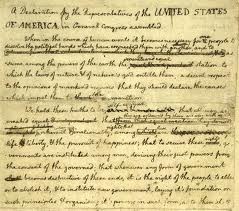 A Declaration by the Representatives of the UNITED STATES
OF AMERICA, in General Congress assembled.
When in the course of human events it becomes necessary for people to
dissolve the political bands which have connected them with another, and to
sume among the powers of the earth the station to
which the laws of nature & of nature's god entitle them, a decent respect
to the opinions of mankind requires that they should declare the causes
which impel them to the
We hold these truths to be that all men are
created equal
inherent & inalienable among
life & liberty, & the pursuit of happiness; that to secure these rights, go
vernments are instituted among men, deriving their just powers from
the consent of the governed; that whenever any form of government
becomes destructive of these ends, it is the right of the people to alter
or to abolish it, & to institute new government, laying it's foundation on
such principles & organising it's powers in such form, as to them